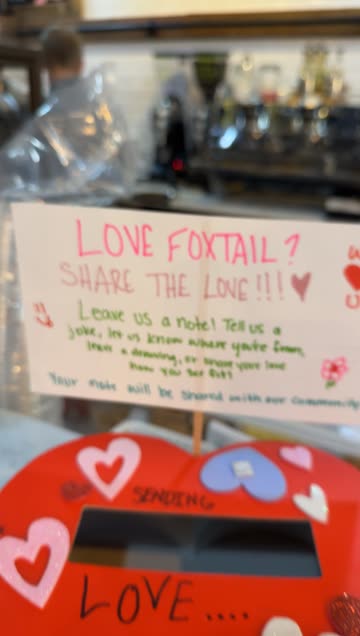 LOVE FOXTAIL?
SHARE THE LOVE!!!
Leave us a note! Tell us a
joke, let us know where you're from,
leave a drawing, or share your love
Your note will be shared with our community
SENDING
LOVE....